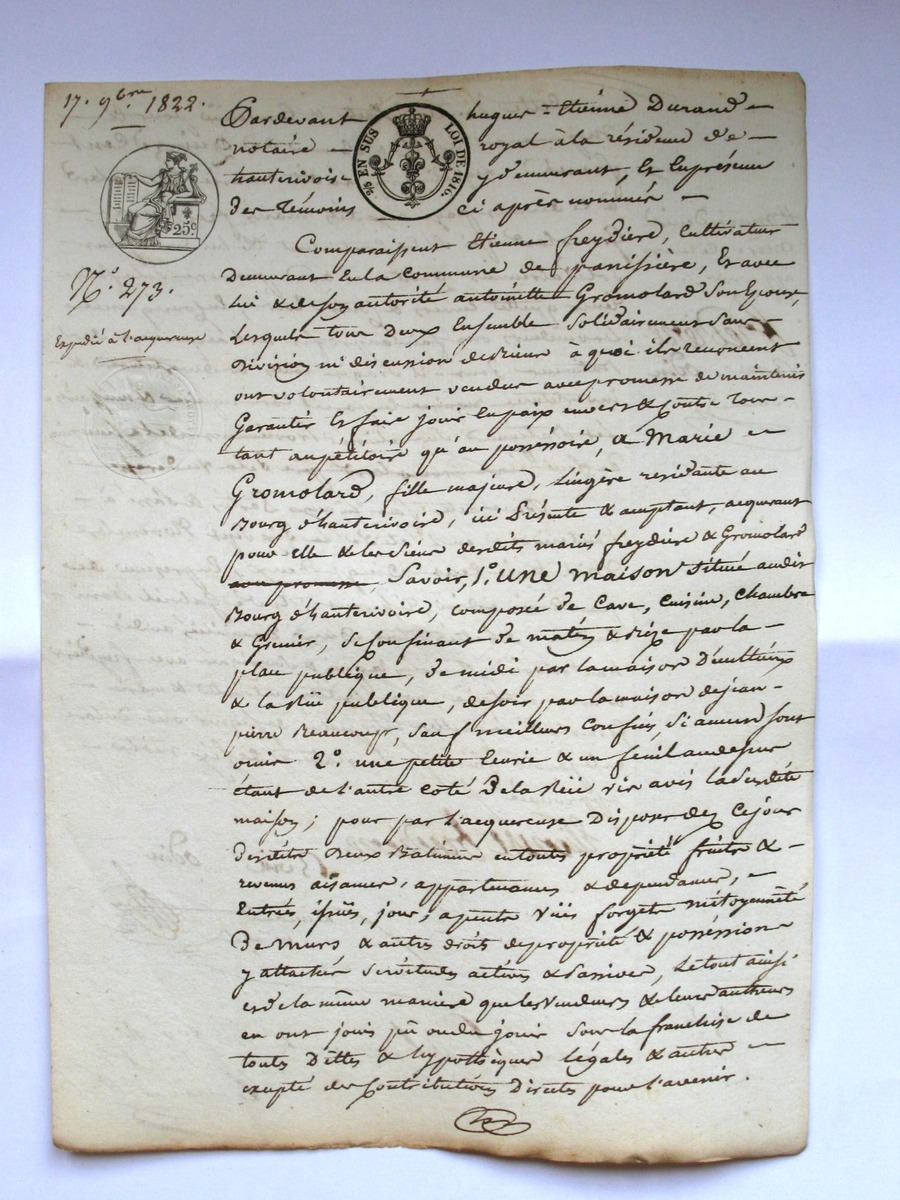 17. 9bre 1822.
Pardevant hugues = Etiénne Durand =
notaire = royal à la résidence de =
hauterivoire y demeurant, Et En présence
des Témoins ci après nommés =
25 EN SUS LOI DE 1816.
25c
N° 273.
Expédié à l'acquereuse
Comparaissent Etienne freydiere, Cultivateur
Demeurant En la Commune de panissière, Et avec
lui & de son autorité antoinette Gromolard Son Epouse,
Lesquels tous Deux Ensemble Solidairement Sans =
Division ni discussion de Biens à quoi ils renoncent
ont volontairement vendu avec promesse de maintenir
Garantir Et faire jouir En paix envers & contre Tous =
tant au pétitoire qu'au posséssoire, à Marie =
Gromolard, fille majeure, Lingère residante au
Bourg d'hauterivoire, ici Présente & acceptant, acquerant
pour elle & les siens desdits mariés freydiere & Gromolard
Savoir, 1° une maison située audit
Bourg d'hauterivoire, composée de Cave, Cuisine, Chambre
& Grenier, se Confinant de matin & bize par la =
place publique, de midi par la maison
& la rüe publique, de soir par la maison de jean =
pierre Beaucoup, Sauf meilleurs Confins, Si aucuns sont
omis 2° une petite Ecurie & un fenil au dessus
étant de l'autre coté De la Rüe vis avis la Susdite
maison; pour par l'acquereuse Disposer dez Ce jour
Desdits Deux Batimens en toute propriété fruits &
revenus aisances, appartenances & dependances, =
Entrées, issües, jours, vües forgets mitoyenneté
De murs & autres droits de propriété & posséssion =
y attachés Servitudes actives & Passives, Le tout ainsi
et de la même manière que les Vendeurs & leurs autheurs
en ont joui pü ou dû jouir Sous la franchise de
toutes Dettes & hypothèques légales & autres =
excepté des Contributions Directes pour l'avenir.